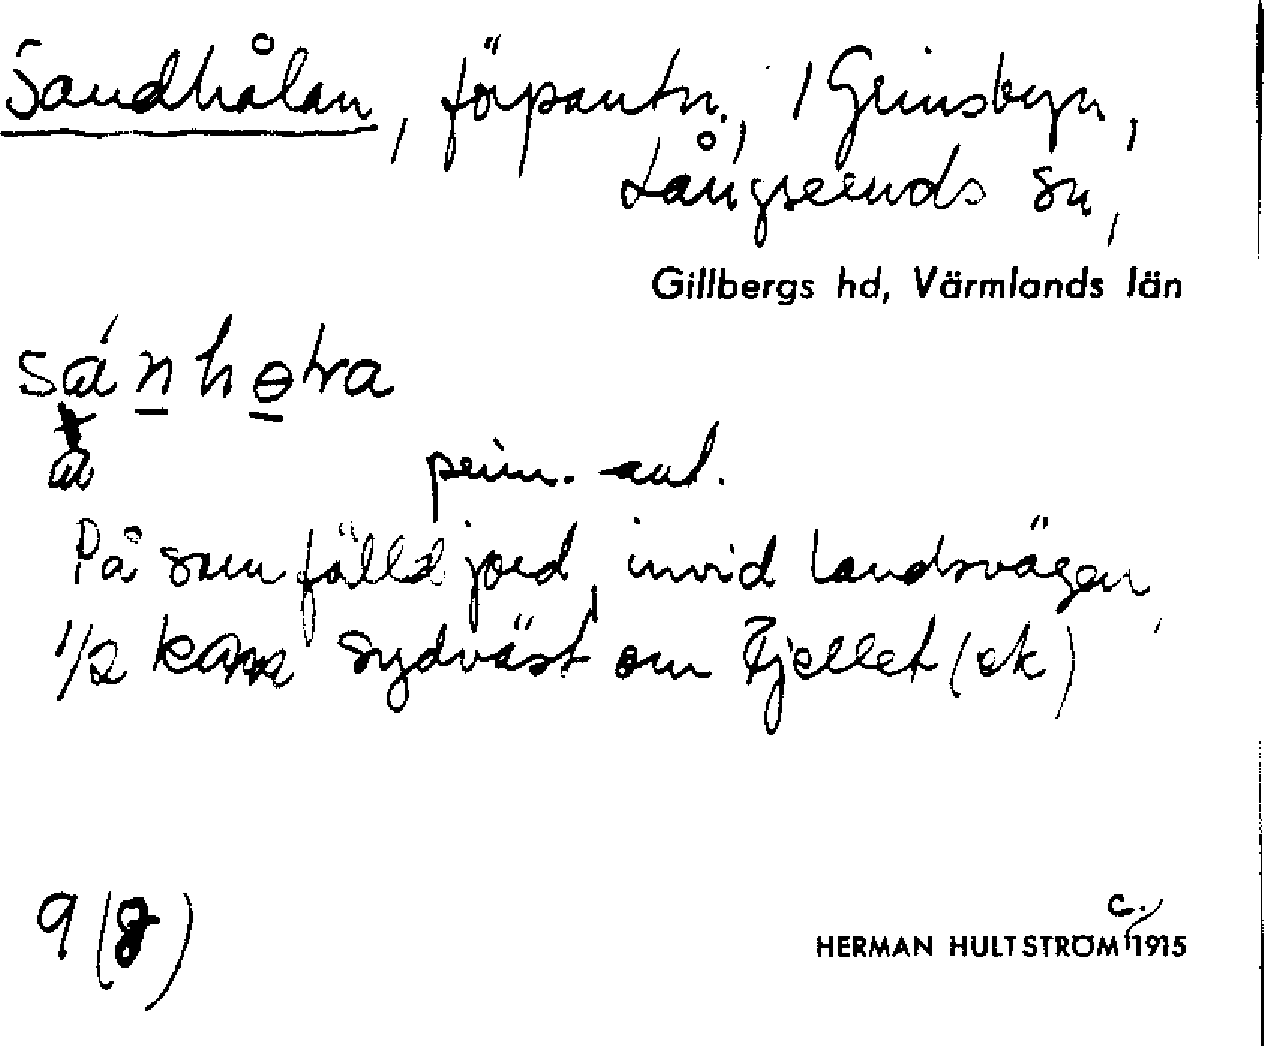 Sandhålan, förpantn., i Grinsbyn,
Långseruds sn,
Gillbergs hd, Värmlands län
sánhɵɫra
a
prim. ant.
På samfälld jord, invid landsvägen,
1/2 km sydväst om Fjellet (ek)
9 (8)
c.
HERMAN HULTSTRÖM 1915